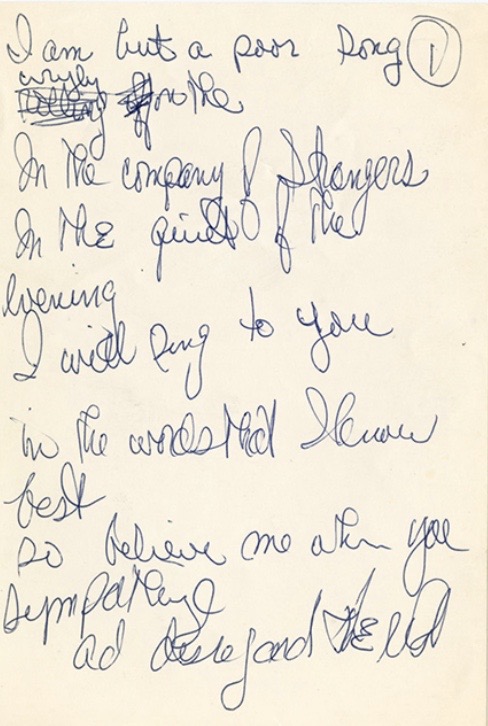 I am but a poor song 1
on the
In the company of strangers
In the quiet of the
evening
I will sing to you
in the words that I know
best
so believe me when you
sympathize
ad disregard the rest